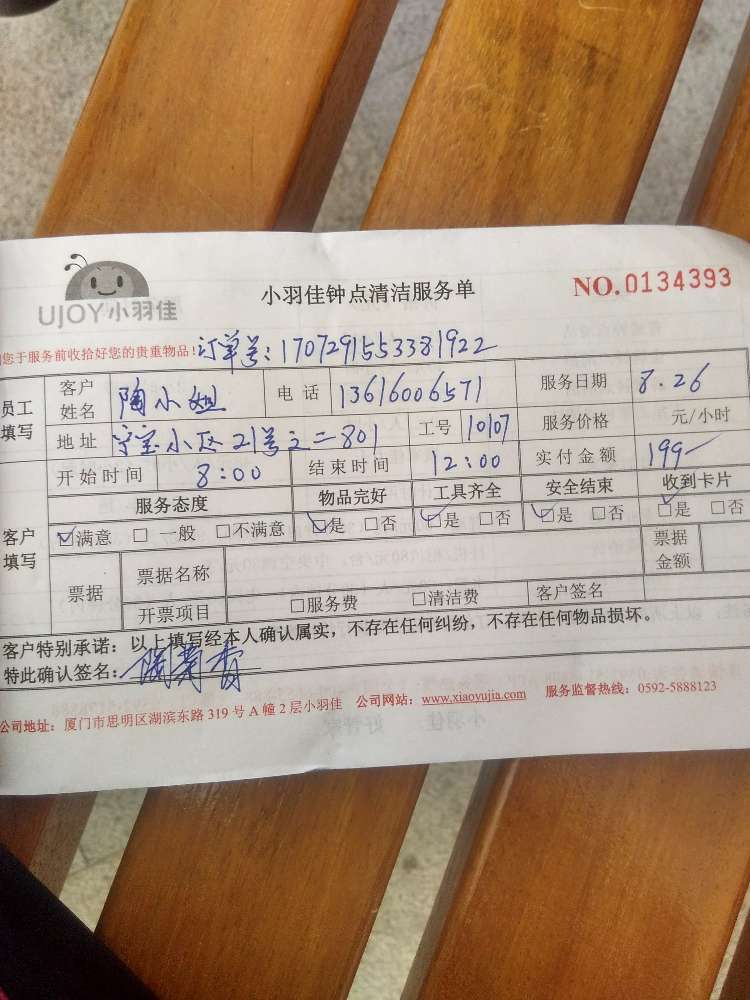 UJOY小羽佳
小羽佳钟点清洁服务单
NO.0134393
您于服务前收拾好您的贵重物品!订单号:1707291553381922
员工填写 客户姓名 陶小姐 电话 13616006571 服务日期 8.26
地址 宝小区21号之二801 工号 10107 服务价格 元/小时
开始时间 8:00 结束时间 12:00 实付金额 199-
客户填写 服务态度 物品完好 工具齐全 安全结束 收到卡片
☑满意 □一般 □不满意 ☑是 □否 ☑是 □否 ☑是 □否 ☑是 □否
票据 票据名称 票据金额
开票项目 □服务费 □清洁费 客户签名
客户特别承诺:以上填写经本人确认属实,不存在任何纠纷,不存在任何物品损坏。
特此确认签名:
公司地址:厦门市思明区湖滨东路319号A幢2层小羽佳 公司网站:www.xiaoyujia.com 服务监督热线:0592-5888123